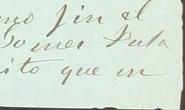 mo fin el
Gomez Pula
ito que en